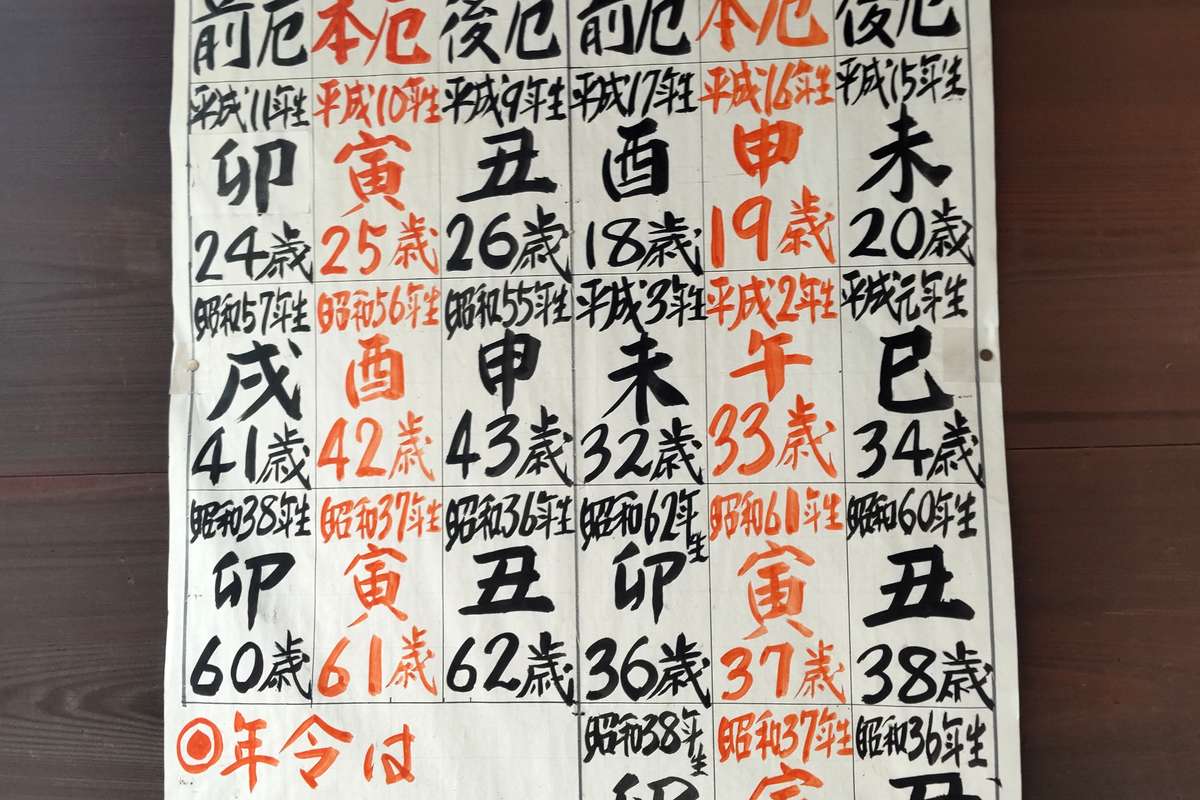 前厄 本厄 後厄 前厄 本厄 後厄
平成11年生 平成10年生 平成9年生 平成17年生 平成16年生 平成15年生
卯 寅 丑 酉 申 未
24歳 25歳 26歳 18歳 19歳 20歳
昭和57年生 昭和56年生 昭和55年生 平成3年生 平成2年生 平成元年生
戌 酉 申 未 午 巳
41歳 42歳 43歳 32歳 33歳 34歳
昭和38年生 昭和37年生 昭和36年生 昭和62年生 昭和61年生 昭和60年生
卯 寅 丑 卯 寅 丑
60歳 61歳 62歳 36歳 37歳 38歳
昭和38年生 昭和37年生 昭和36年生
◎年令は
卯 寅 丑